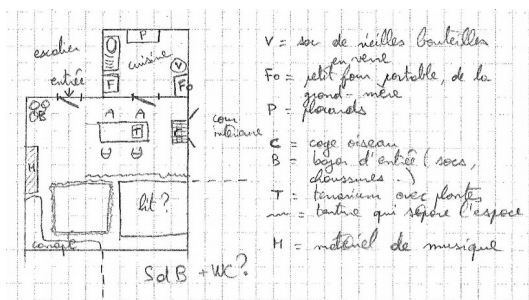 escalier
entrée
P
cuisine
V
F
Fo
B
A A
T
C
cour
intérieure
H
lit ?
canapé
SdB + WC ?
V = sac de vieilles bouteilles
en verre
Fo = petit four portable, de la
grand-mère
P = placards
C = cage oiseau
B = bazar d'entrée (sacs,
chaussures ..)
T = terrarium avec plantes
= tenture qui sépare l'espace
H = matériel de musique